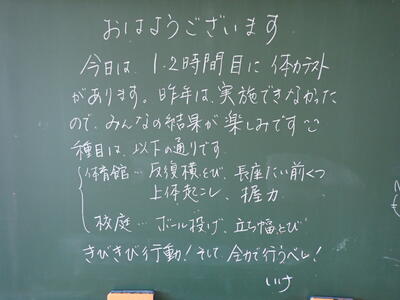 おはようございます
今日は、1.2時間目に体力テスト
があります。昨年は、実施できなかった
ので、みんなの結果が楽しみです
種目は、以下の通りです
体育館…反復横とび、長座たい前くつ
上体起こし、握力
校庭…ボール投げ、立ち幅とび
きびきび行動!そして全力で行うべし!